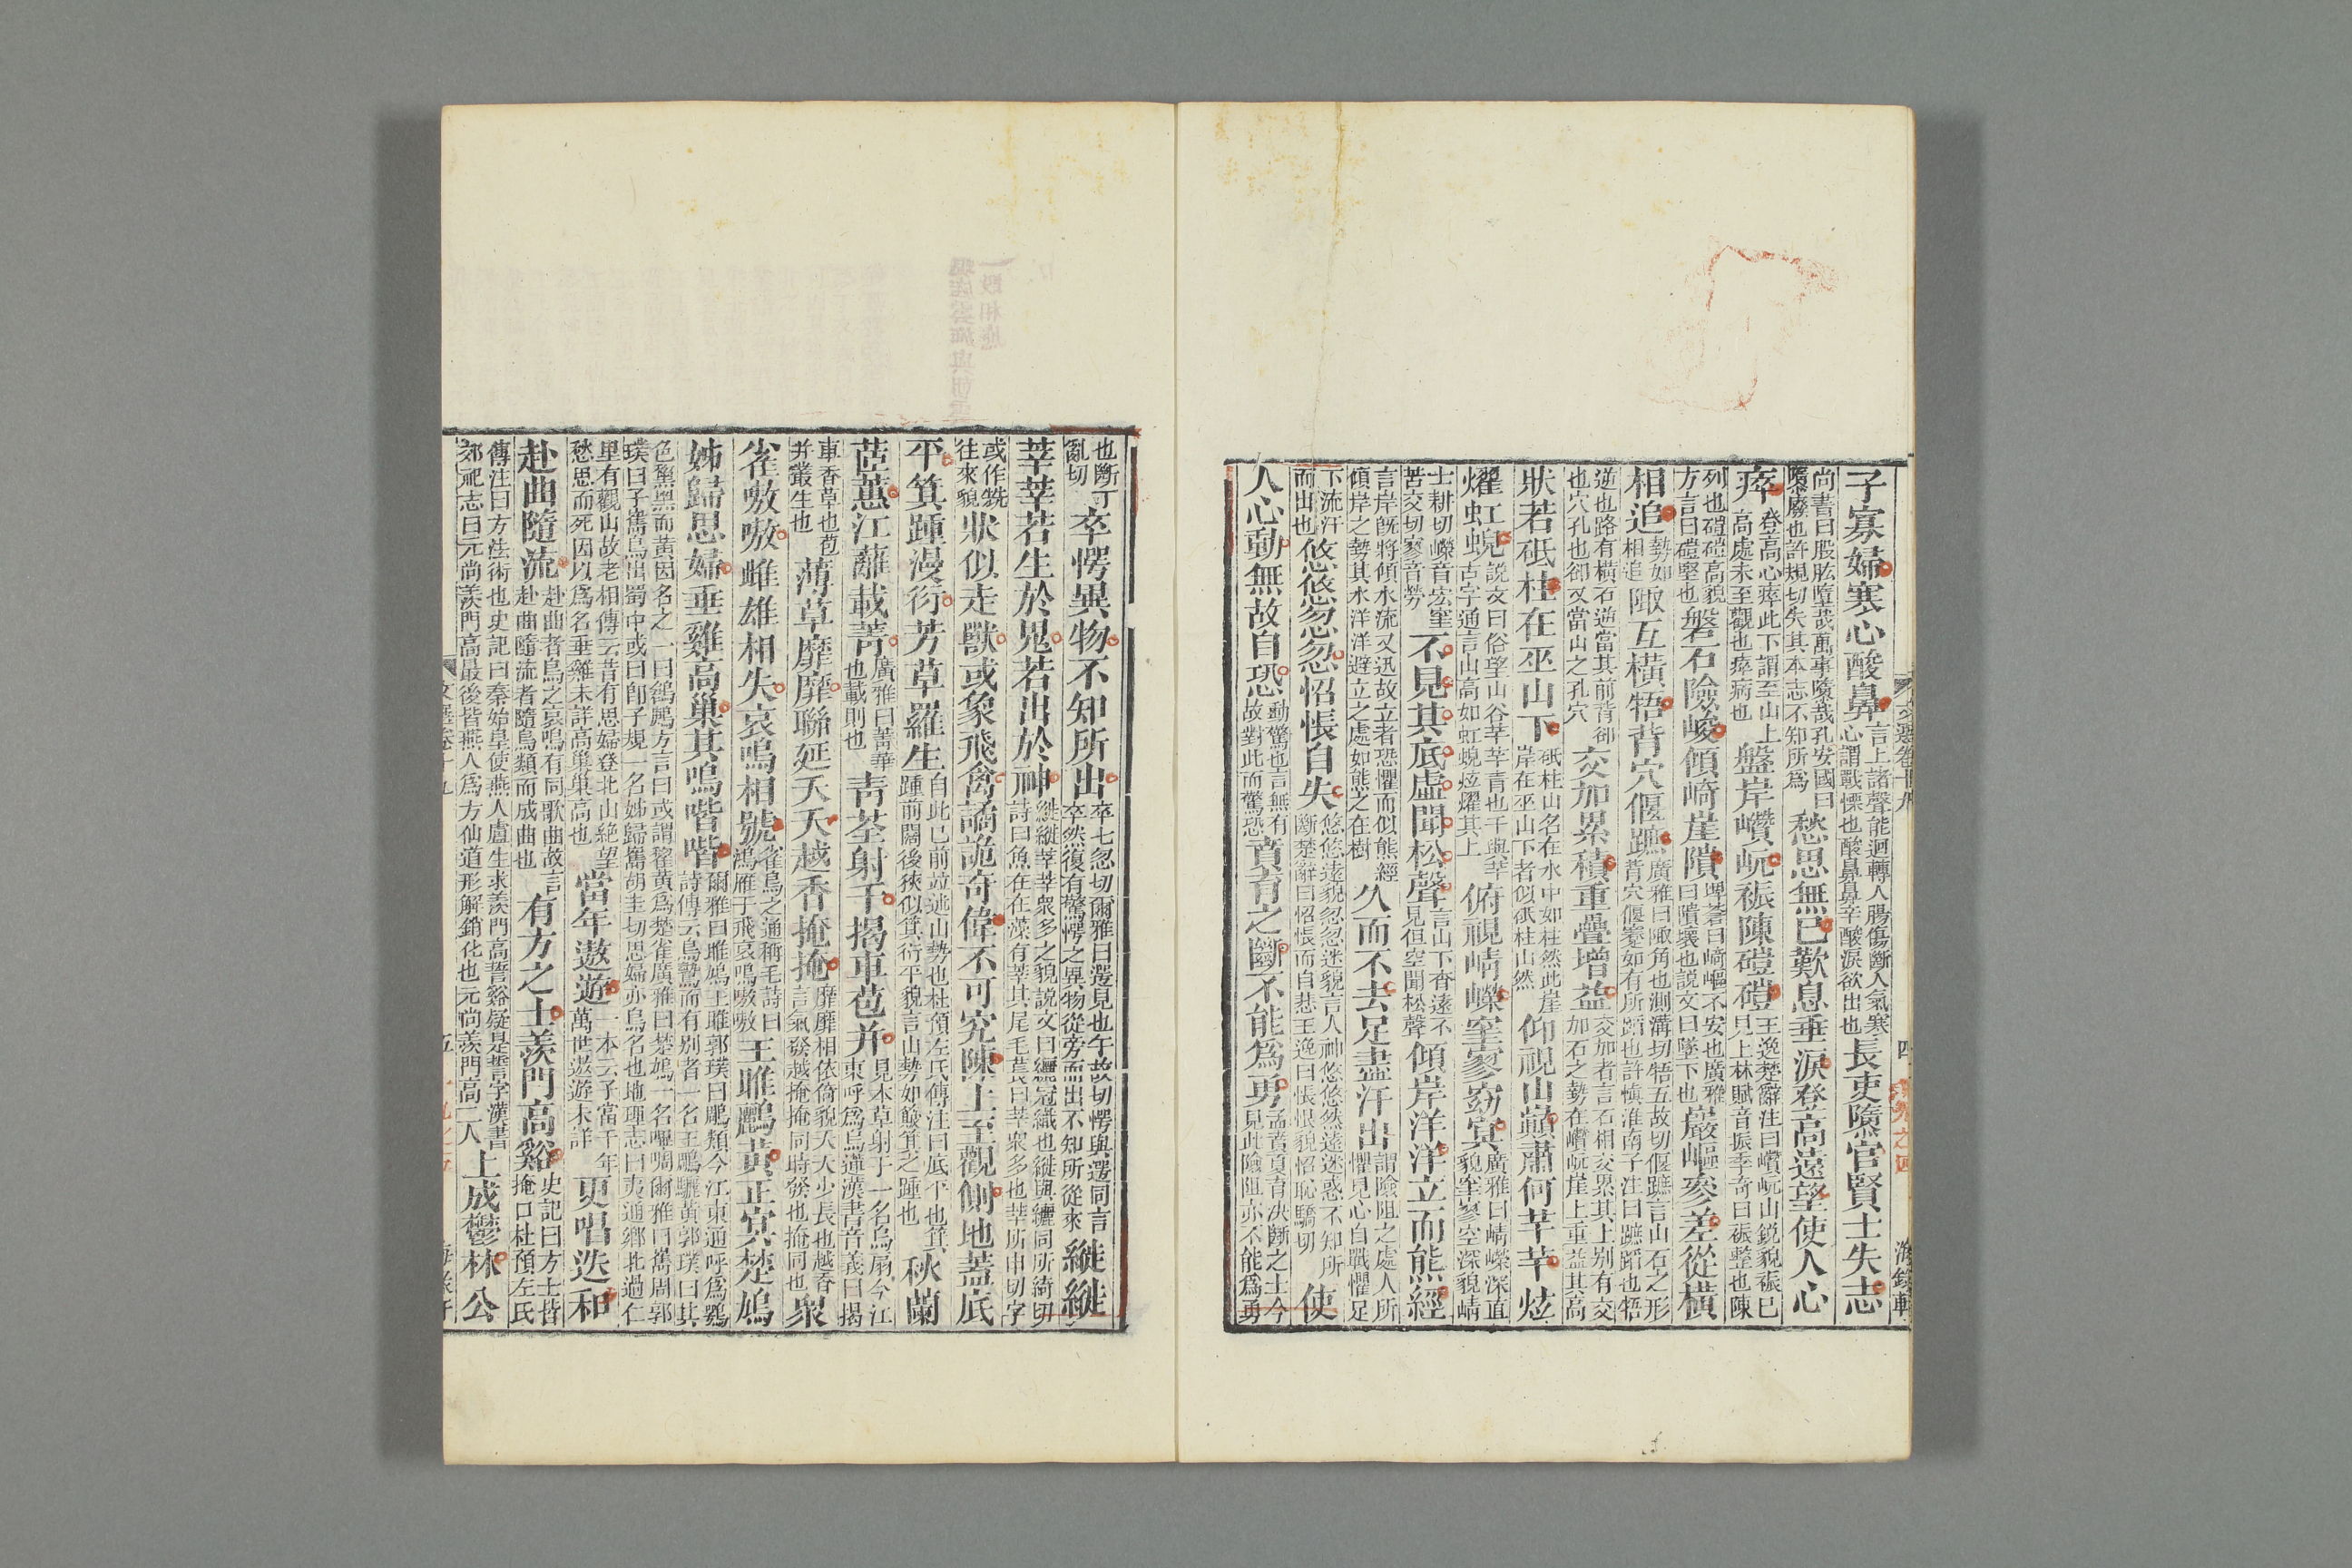 子寡婦寒心酸鼻言上諸聲能迴轉人腸傷斷人氣寒心謂戰慄也酸鼻鼻辛酸淚欲出也長吏隳官賢士失志
尚書曰股肱墮哉萬事隳哉孔安國曰隳廢也許規切失其本志不知所為愁思無已歎息垂淚登高遠望使人心
瘁登高心瘁此下謂至山上高處未至觀也瘁病也盤岸巑岏裖陳磑磑王逸楚辭注曰巑岏山銳貌裖已見上林賦音振李奇曰裖整也陳
列也磑磑高貌方言曰磑堅也磐石險峻傾崎崖隤埤蒼曰崎嶇不安也廣雅曰隤壞也說文曰墜下也巖嶇參差從橫
相追勢如相追陬互橫牾背穴偃蹠廣雅曰陬角也測溝切牾五故切偃蹠言山石之形背穴偃蹇如有所蹈也許慎淮南子注曰蹠蹈也牾
逆也路有橫石逆當其前背卻也穴孔也卻又當山之孔穴交加累積重疊增益交加者言石相交累其上別有交加石之勢在巑岏崖上重益其高
狀若砥柱在巫山下砥柱山名在水中如柱然此崖岸在巫山下者似砥柱山然仰視山巔肅何芊芊炫
燿虹蜺說文曰俗望山谷芊芊青也千與芊古字通言山高如虹蜺炫燿其上俯視崝嶸窐寥窈冥廣雅曰崝嶸深直貌窐寥空深貌崝
士耕切嶸音宏窐苦交切寥音勞不見其底虛聞松聲言山下杳遠不見但空聞松聲傾岸洋洋立而熊經
言岸既將傾水流又迅故立者恐懼而似熊經傾岸之勢其水洋洋避立之處如熊之在樹久而不去足盡汗出謂險阻之處人所懼見心自戰懼足
下流汗而出也悠悠忽忽怊悵自失悠悠遠貌忽忽迷貌言人神悠悠然遠迷惑不知所斷楚辭曰怊悵而自悲王逸曰悵恨貌怊恥驕切使
人心動無故自恐動驚也言無有故對此而驚恐賁育之斷不能為勇孟賁夏育決斷之士今見此險阻亦不能為勇
文選卷十九 四 海錄軒
也斷丁亂切卒愕異物不知所出卒七忽切爾雅曰遻見也午故切愕與遻同言卒然復有驚愕之異物從旁而出不知所從來縰縰
莘莘若生於鬼若出於神縰縰莘莘眾多之貌說文曰纚冠織也縰與纚同所綺切詩曰魚在在藻有莘其尾毛萇曰莘眾多也莘所巾切字
或作甡往來貌狀似走獸或象飛禽譎詭奇偉不可究陳上至觀側地蓋底
平箕踵漫衍芳草羅生自此已前竝述山勢也杜預左氏傳注曰底平也箕踵前闊後狹似箕衍平貌言山勢如簸箕之踵也秋蘭
茝蕙江蘺載菁廣雅曰菁華也載則也青荃射干揭車苞并見本草射干一名烏扇今江東呼為烏蓮漢書音義曰揭
車香草也苞并叢生也薄草靡靡聯延夭夭越香掩掩靡靡相依倚貌夭夭少長也越香言氣發越掩掩同時發也掩同也眾
雀嗷嗷雌雄相失哀鳴相號雀鳥之通稱毛詩曰鴻雁于飛哀鳴嗷嗷王雎鸝黃正冥楚鳩
姊歸思婦垂雞高巢其鳴喈喈爾雅曰雎鳩王雎郭璞曰鵰類今江東通呼為鶚詩傳云鳥鷙而有別者一名王鵰驪黃郭璞曰其
色黧黑而黃因名之一曰鶬鶊方言曰或謂鸝黃為楚雀廣雅曰楚鳩一名嗥啁爾雅曰巂周郭璞曰子巂鳥出蜀中或曰即子規一名姊歸巂胡圭切思婦亦鳥名也地理志曰夷通鄉北過仁
里有觀山故老相傳云昔有思婦登北山絕望愁思而死因以為名垂雞未詳高巢巢高也當年遨遊一本云子當千年萬世遨遊未詳更唱迭和
赴曲隨流赴曲者鳥之哀鳴有同歌曲故言赴曲隨流者隨鳥類而成曲也有方之士羨門高谿史記曰方士皆掩口杜預左氏
傳注曰方法術也史記曰秦始皇使燕人盧生求羨門高誓谿疑是誓字漢書郊祀志曰元尚羨門高最後皆燕人為方仙道形解銷化也元尚羨門高二人上成鬱林公
文選卷十九 五 海錄軒